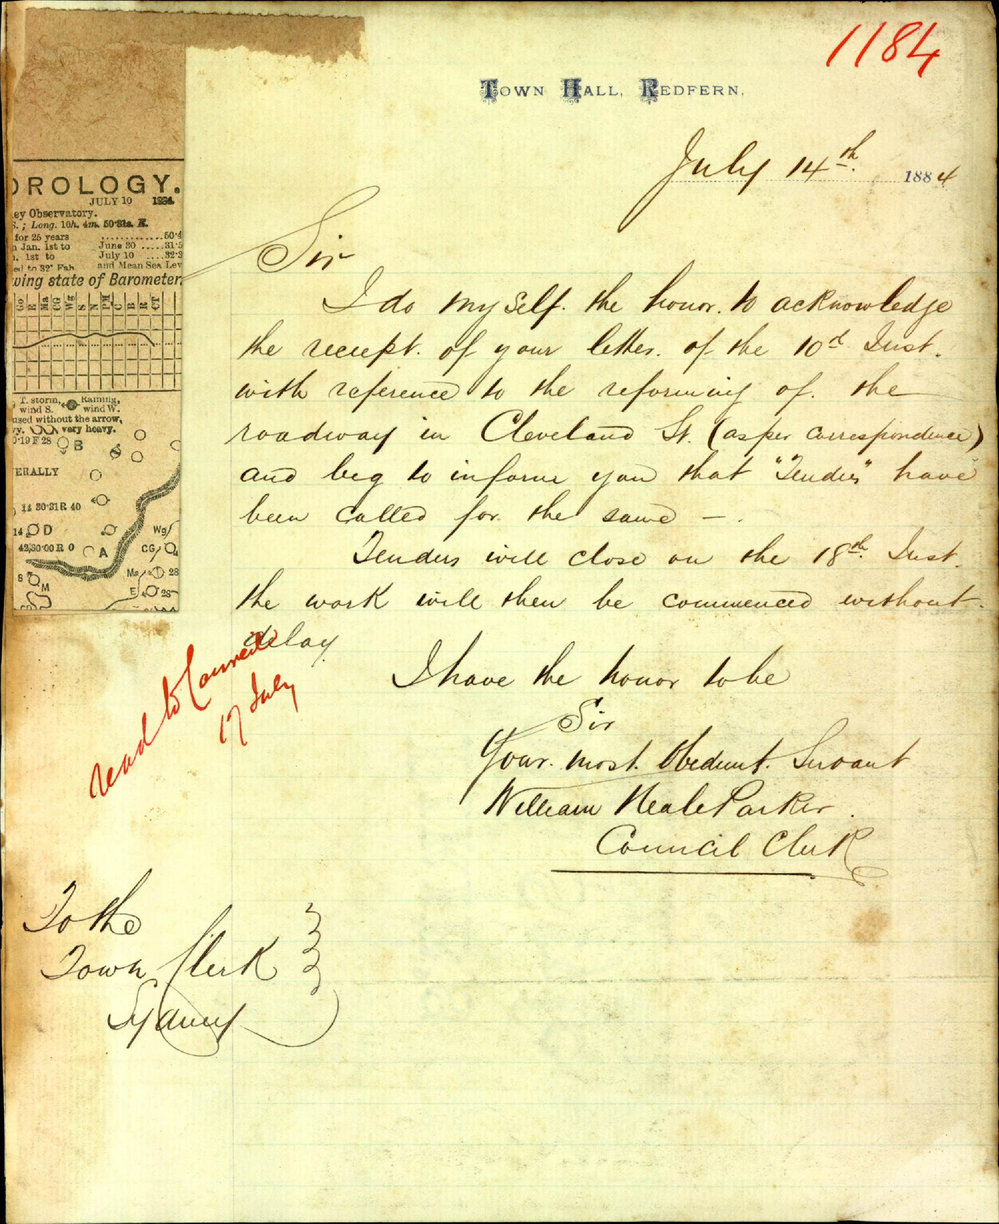 1184
TOWN HALL, REDFERN,
July 14th 1884
Sir
I do myself. the honor. to acknowledge
the receipt. of your letter. of the 10th Inst.
with reference to the reforming of. the
roadway in Cleveland St. (as per correspondence)
and beg to inform you that "Tenders" have
been called for the same —.
Tenders will close on the 18th Inst.
the work will then be commenced without.
delay
I have the honor to be
Sir
Your. most. Obedient. Servant
William Neale Parker.
Council Clerk
read to Council
17 July
To the
Town Clerk
Sydney
OROLOGY.
JULY 10 1884.
ey Observatory.
S. ; Long. 10h. 4m. 50·81s. E.
for 25 years ............. 50·4
n Jan. 1st to June 30 ..... 31·5
. 1st to July 10 .... 32·3
ed to 32° Fah. and Mean Sea Lev
wing state of Barometer
Go
E
Ma
CG
Wg
S
N
PM
C
B
R
CT
T. storm, Raining,
wind S. wind W.
used without the arrow,
vy. very heavy.
0·19 F 28 B
ERALLY
14 30·31 R 40
14 D
42,30·00 R 0 A
Wg
CG
Ma 28
8 M
E 28